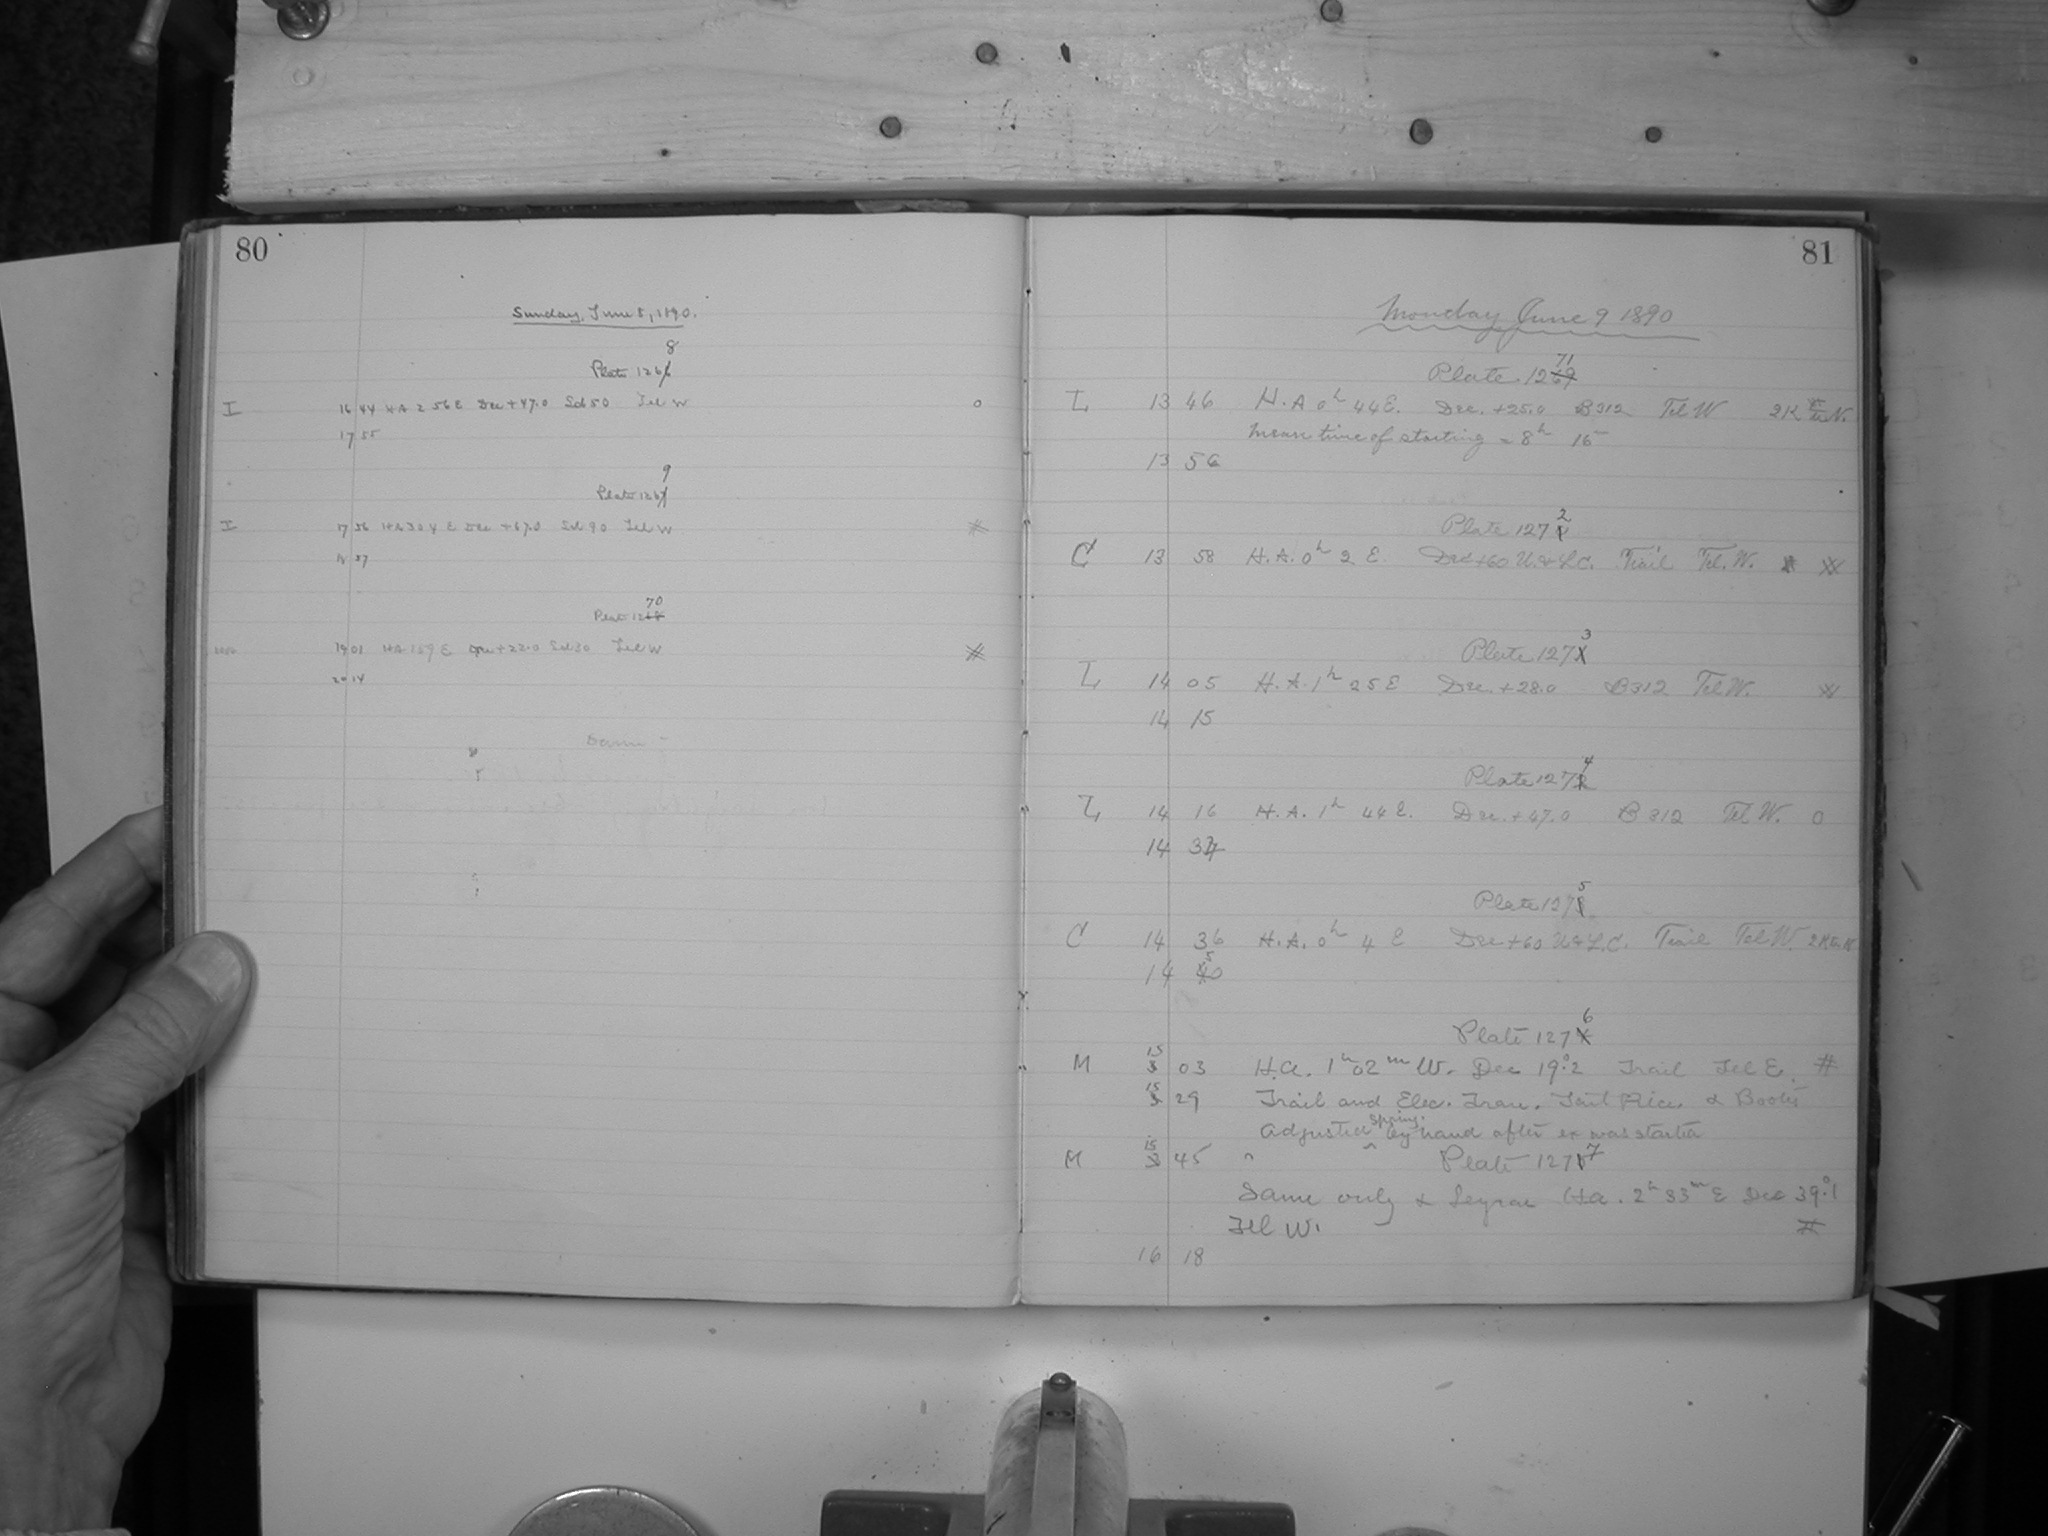 80
Sunday, June 8, 1890.
8
Plate 1266
I 16 44 HA 2 56 E Dec +47.0 Sid 50 Tel W 0
17 55
9
Plate 1267
I 17 56 HA 3 04 E Dec +67.0 Sid 90 Tel W #
57
70
Plate 1268
19 01 HA 1 59 E Dec +22.0 Sid 30 Tel W #
20 14
81
Monday June 9 1890
71
Plate 1269
L 13 46 H.A 0h 44 E. Dec. +25.0 B312 Tel W 2K N.
Mean time of starting = 8h 15
13 56
2
Plate 127
C 13 58 H.A. 0h 2 E. Dec +60 U. & L.C. Trail Tel. W. #
3
Plate 127
L 14 05 H.A. 1h 25 E Dec. +28.0 B312 Tel W. #
14 15
4
Plate 1272
L 14 16 H.A. 1h 44 E. Dec. +47.0 B 312 Tel W. 0
14 3
5
Plate 127
C 14 36 H.A. 0h 4 E Dec +60 U & L.C. Trail Tel W. 2K
5
14 40
6
Plate 127
M 15 03 H.A. 1h 02m W. Dec 19°.2 Trail Tel E. #
15 29 Trail and Elec. Tran. &
Spring
Adjusted ^ by hand after ex was started
M 15 45 Plate 127 7
Same only & H.a. 2h 33m E Dec 39°.1
Tel W. #
16 18